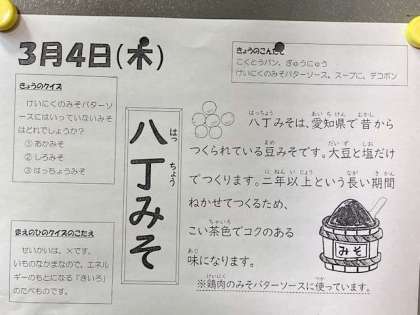 3月4日(木)
きょうのこんだて
こくとうパン、ぎゅうにゅう
けいにくのみそバターソース、スープに、デコポン
きょうのクイズ
けいにくのみそバターソー
スにはいっていないみそ
はどれでしょうか？
①あかみそ
②しろみそ
③はっちょうみそ
まえのひのクイズのこたえ
せいかいは、×です。
いものなかまなので、エネル
ギーのもとになる「きいろ」
のたべものです。
八丁みそ
はっちょう
八丁みそは、愛知県で昔から
つくられている豆みそです。大豆と塩だけ
でつくります。二年以上という長い期間
ねかせてつくるため、
こい茶色でコクのある
味になります。
みそ
※鶏肉のみそバターソースに使っています。